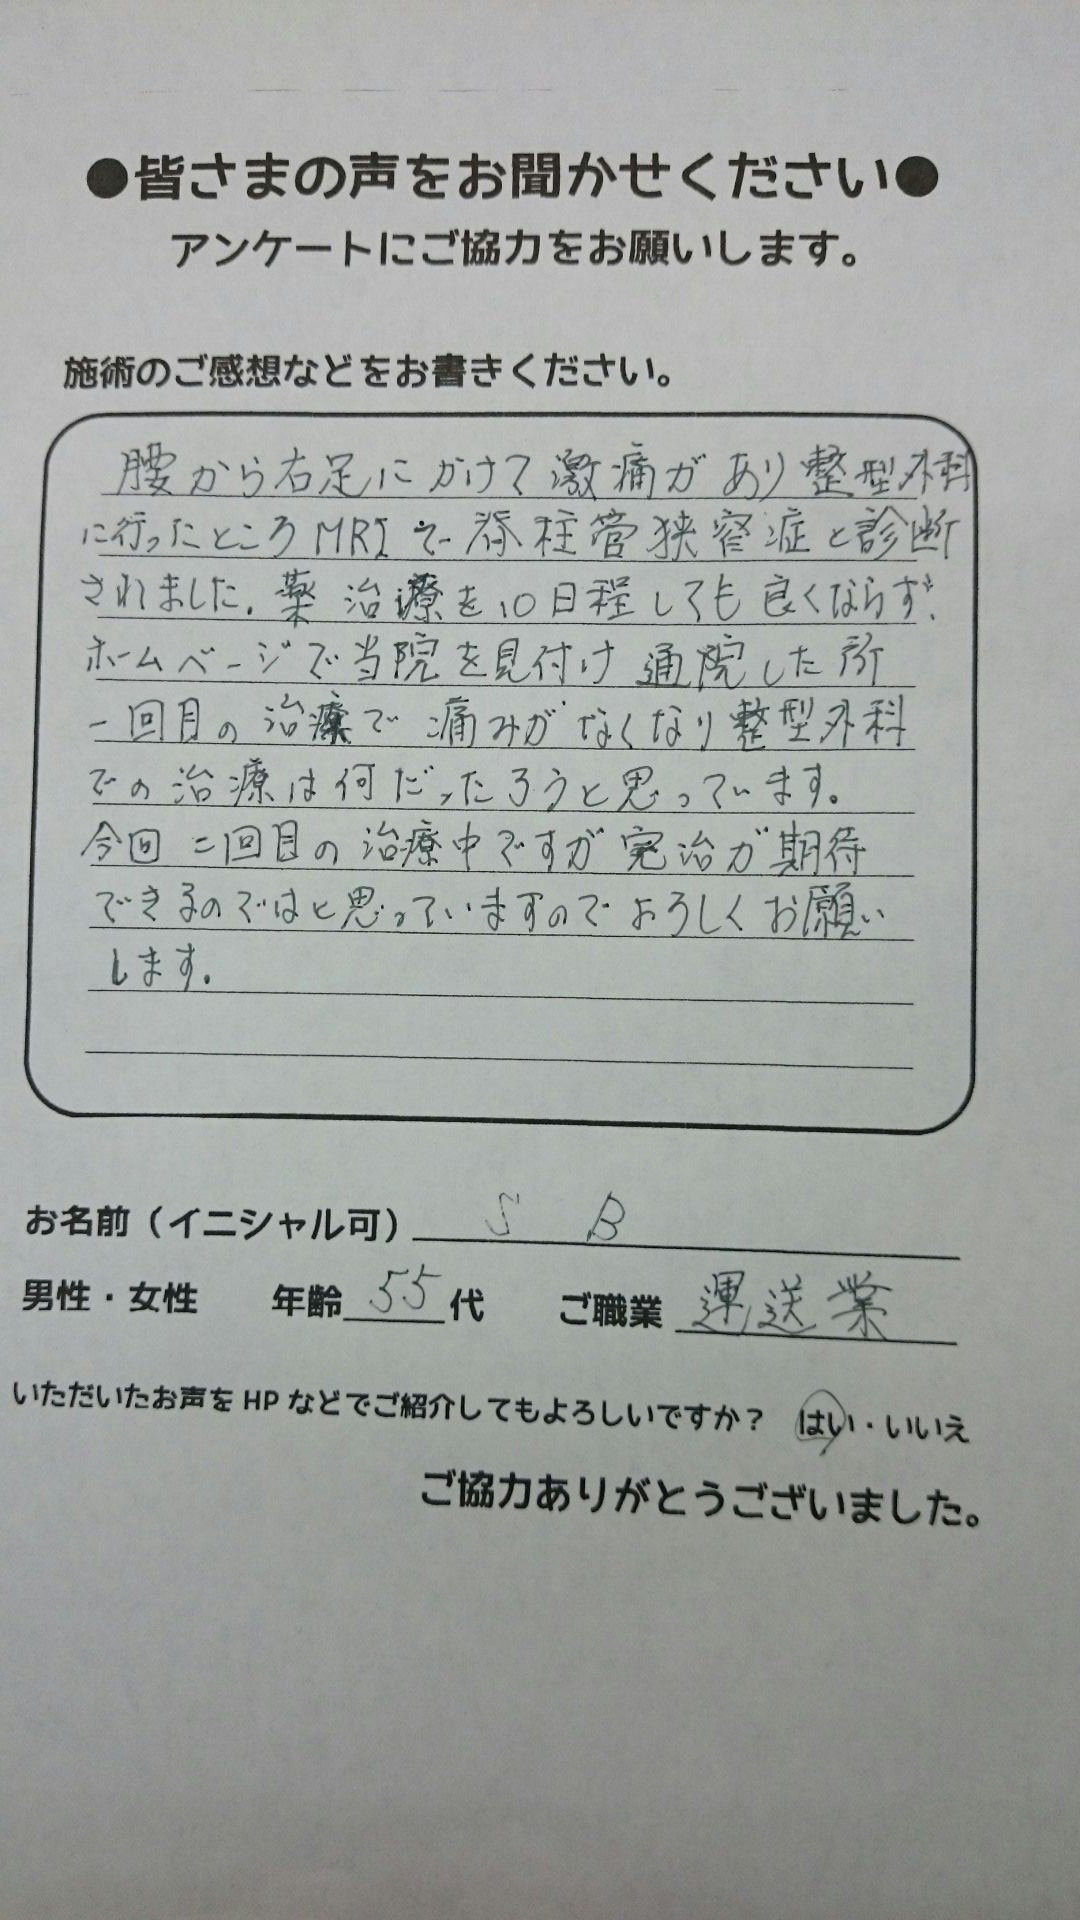 ●皆さまの声をお聞かせください●
アンケートにご協力をお願いします。
施術のご感想などをお書きください。
腰から右足にかけて激痛があり整型外科
に行ったところMRIで脊柱管狭窄症と診断
されました。薬治療を10日程しても良くならず、
ホームページで当院を見付け通院した所
一回目の治療で痛みがなくなり整型外科
での治療は何だったろうと思っています。
今回二回目の治療中ですが完治が期待
できるのではと思っていますのでよろしくお願い
します。
お名前（イニシャル可） S B
男性・女性 年齢 55 代 ご職業 運送業
いただいたお声をHPなどでご紹介してもよろしいですか？ はい・いいえ
ご協力ありがとうございました。